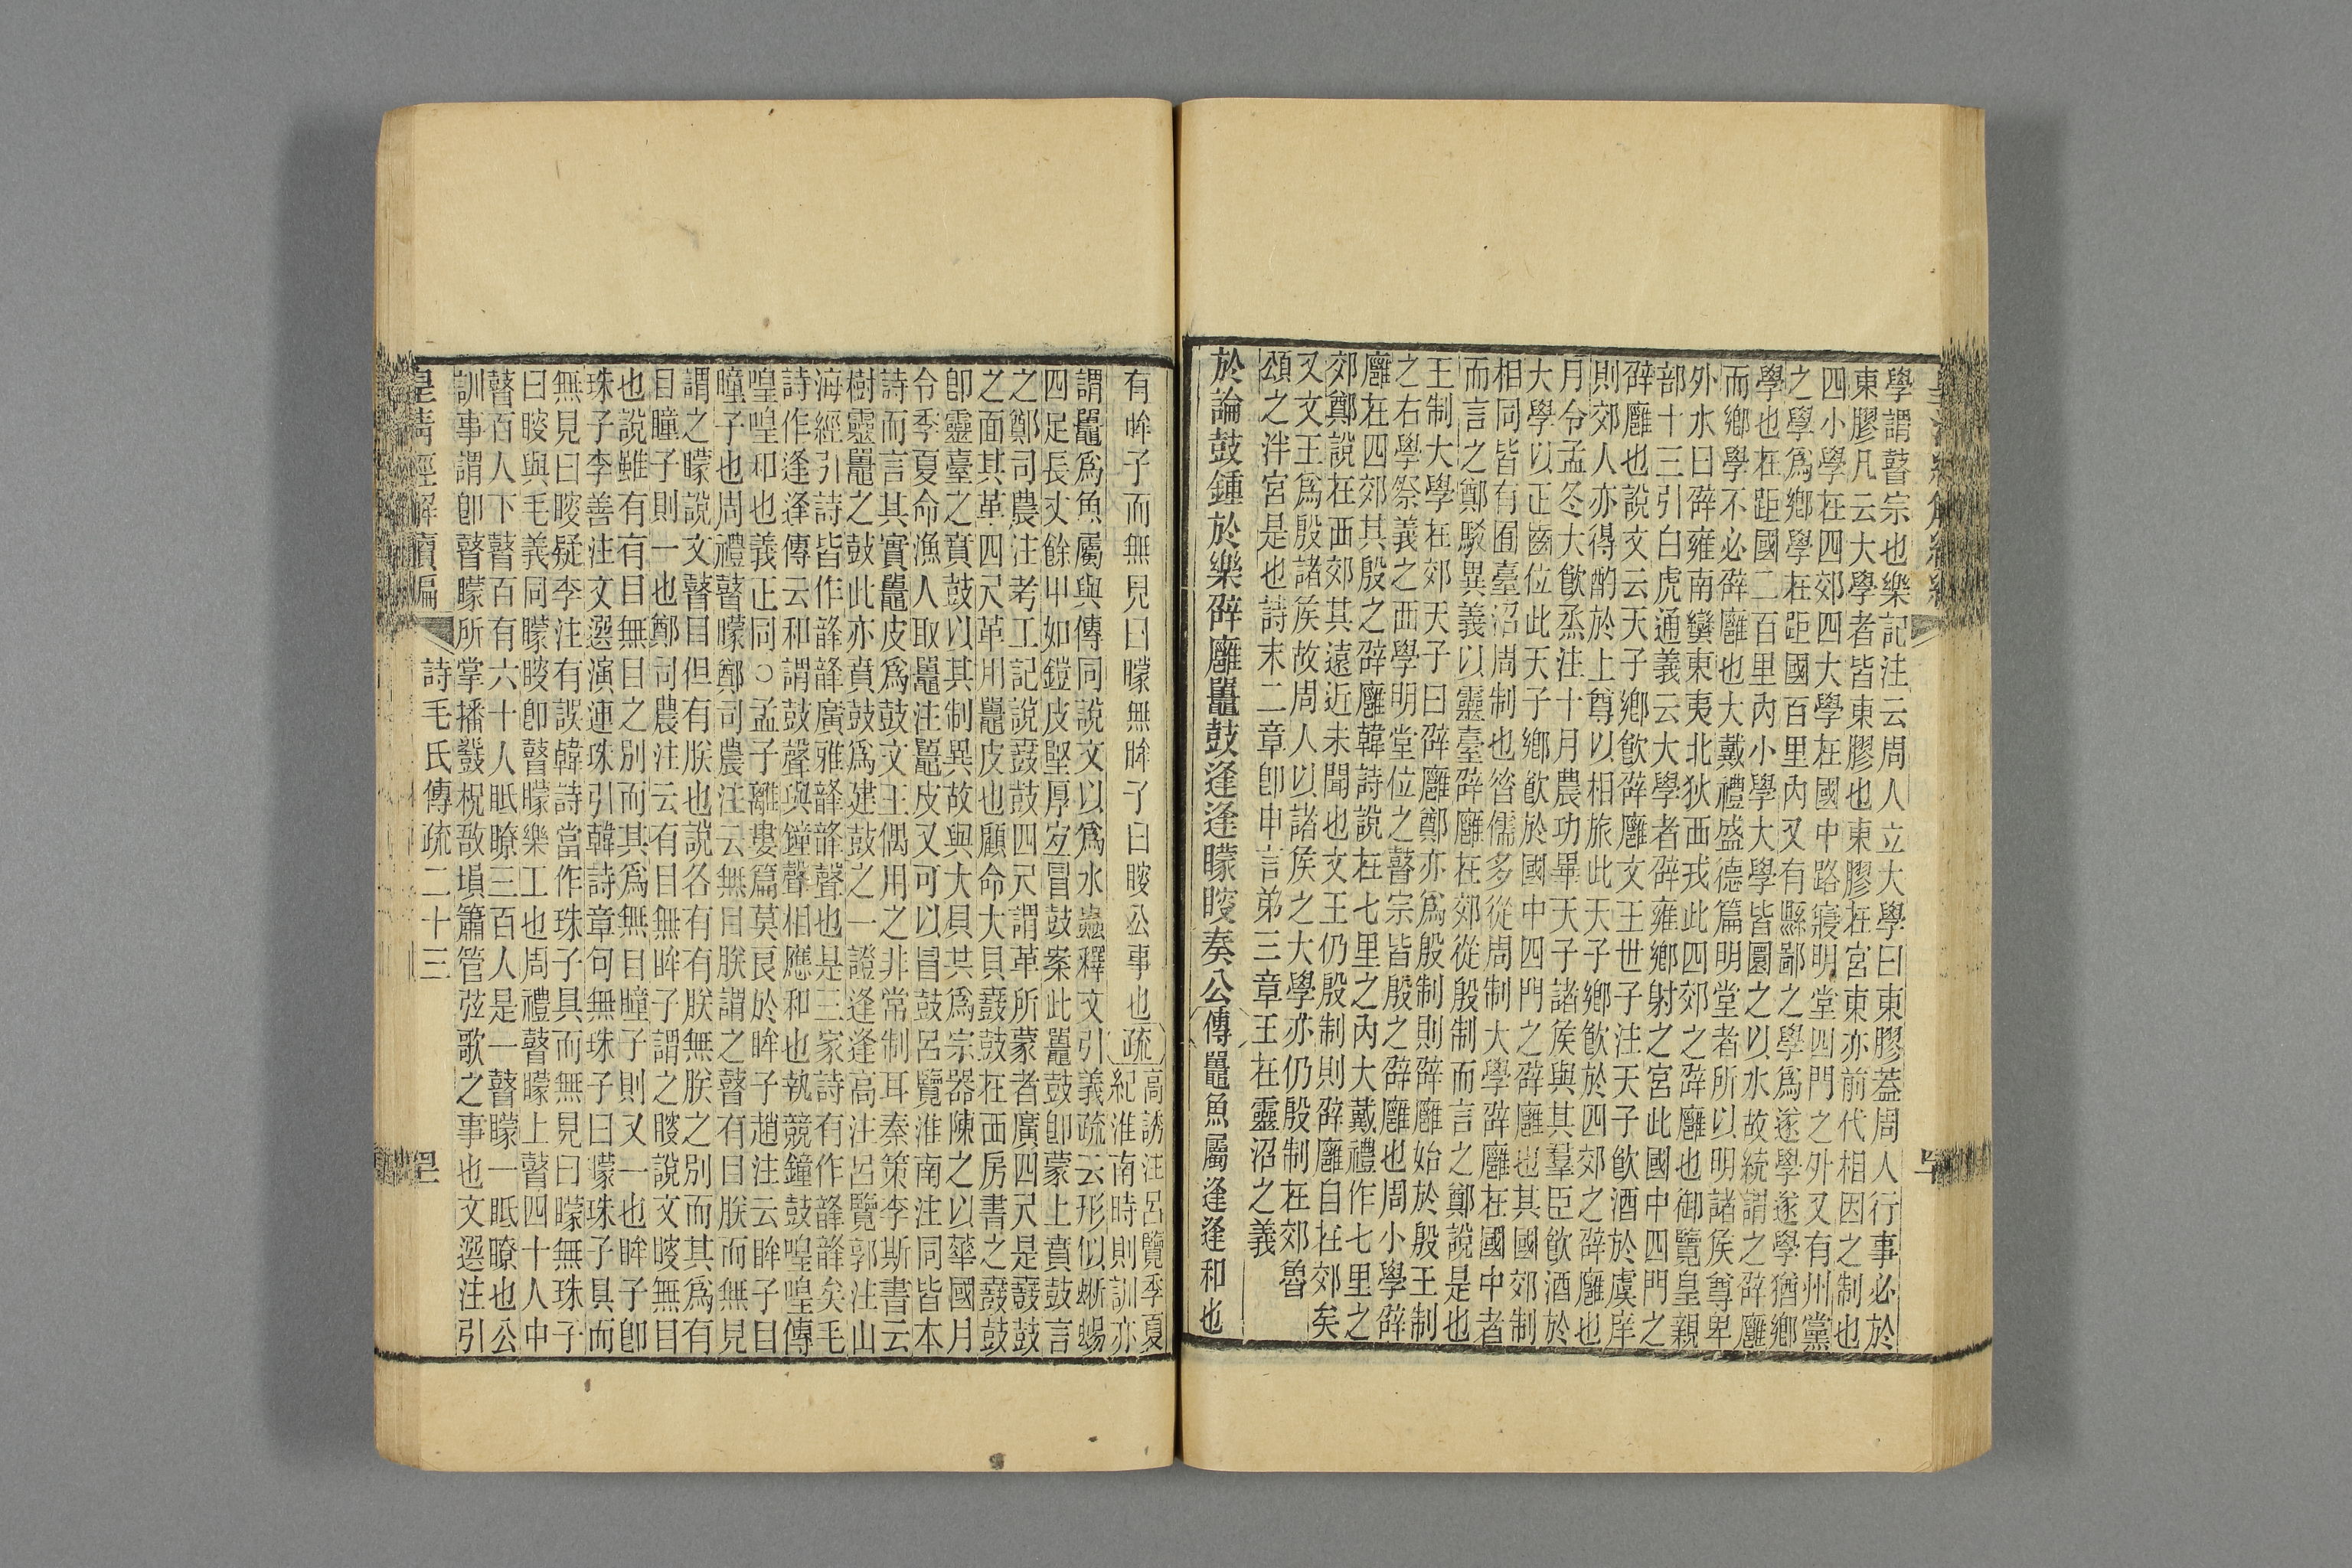 學謂瞽宗也樂記注云周人立大學曰東膠葢周人行事必於
東膠凡云大學者皆東膠也東膠在宮東亦前代相因之制也
四小學在四郊四大學在國中路寢明堂四門之外又有州黨
之學爲鄉學在距國百里內又有縣鄙之學爲遂學遂學猶鄉
學也在距國二百里內小學大學皆圜之以水故統謂之辟廱
而鄉學不必辟廱也大戴禮盛德篇明堂者所以明諸矦尊卑
外水曰辟雍南蠻東夷北狄西戎此四郊之辟廱也御覽皇親
部十三引白虎通義云大學者辟雍鄉射之宮此國中四門之
辟廱也說文云天子鄉飮辟廱文王世子注天子飮酒於虞庠
則郊人亦得酌於上尊以相旅此天子鄉飮於四郊之辟廱也
月令孟冬大飮烝注十月農功畢天子諸矦與其羣臣飮酒於
大學以正齒位此天子鄉飮於國中四門之辟廱也其國郊制
相同皆有囿臺沼周制也昝儒多從周制大學辟廱在國中者
而言之鄭駁異義以靈臺辟廱在郊從殷制而言之鄭說是也
王制大學在郊天子曰辟廱鄭亦爲殷制則辟廱始於殷王制
之右學祭義之西學明堂位之瞽宗皆殷之辟廱也周小學辟
廱在四郊其殷之辟廱韓詩說在七里之內大戴禮作七里之
郊鄭說在西郊其遠近未聞也文王仍殷制則辟廱自在郊矣
又文王爲殷諸矦故周人以諸矦之大學亦仍殷制在郊魯
頌之泮宮是也詩末二章卽申言弟三章王在靈沼之義
於論鼓鍾於樂辟廱鼉鼓逢逢矇瞍奏公傳鼉魚屬逢逢和也
有眸子而無見曰矇無眸子曰瞍公事也疏高誘注呂覽季夏
紀淮南時則訓亦
謂鼉爲魚屬與傳同說文以爲水蟲釋文引義疏云形似蜥蜴
四足長丈餘甲如鎧皮堅厚宐冒鼓案此鼉鼓卽蒙上賁鼓言
之鄭司農注考工記說鼖鼓四尺謂革所蒙者廣四尺是鼖鼓
之面其革四尺革用鼉皮也顧命大貝鼖鼓在西房書之鼖鼓
卽靈臺之賁鼓以其制異故與大貝共爲宗器陳之以華國月
令季夏命漁人取鼉注鼉皮又可以冒鼓呂覽淮南注同皆本
詩而言其實鼉皮爲鼓文王偶用之非常制耳秦策李斯書云
樹靈鼉之鼓此亦賁鼓爲建鼓之一證逢逢高注呂覽郭注山
海經引詩皆作韸韸廣雅韸韸聲也是三家詩有作韸韸矣毛
詩作逢逢傳云和謂鼓聲與鐘聲相應和也執競鐘鼓喤喤傳
喤喤和也義正同○孟子離婁篇莫良於眸子趙注云眸子目
瞳子也周禮瞽矇鄭司農注云無目朕謂之瞽有目朕而無見
謂之矇說文瞽目但有朕也說各有有朕無朕之別而其爲有
目瞳子則一也鄭司農注云有目無眸子謂之瞍說文瞍無目
也說雖有有目無目之別而其爲無目瞳子則又一也眸子卽
珠子李善注文選演連珠引韓詩章句無珠子曰矇珠子具而
無見曰瞍疑李注有誤韓詩當作珠子具而無見曰矇無珠子
曰瞍與毛義同矇瞍卽瞽矇樂工也周禮瞽矇上瞽四十人中
瞽百人下瞽百有六十人眡瞭三百人是一瞽矇一眡瞭也公
訓事謂卽瞽矇所掌播鼗柷敔塤簫管弦歌之事也文選注引
皇清經解續編 詩毛氏傳疏二十三